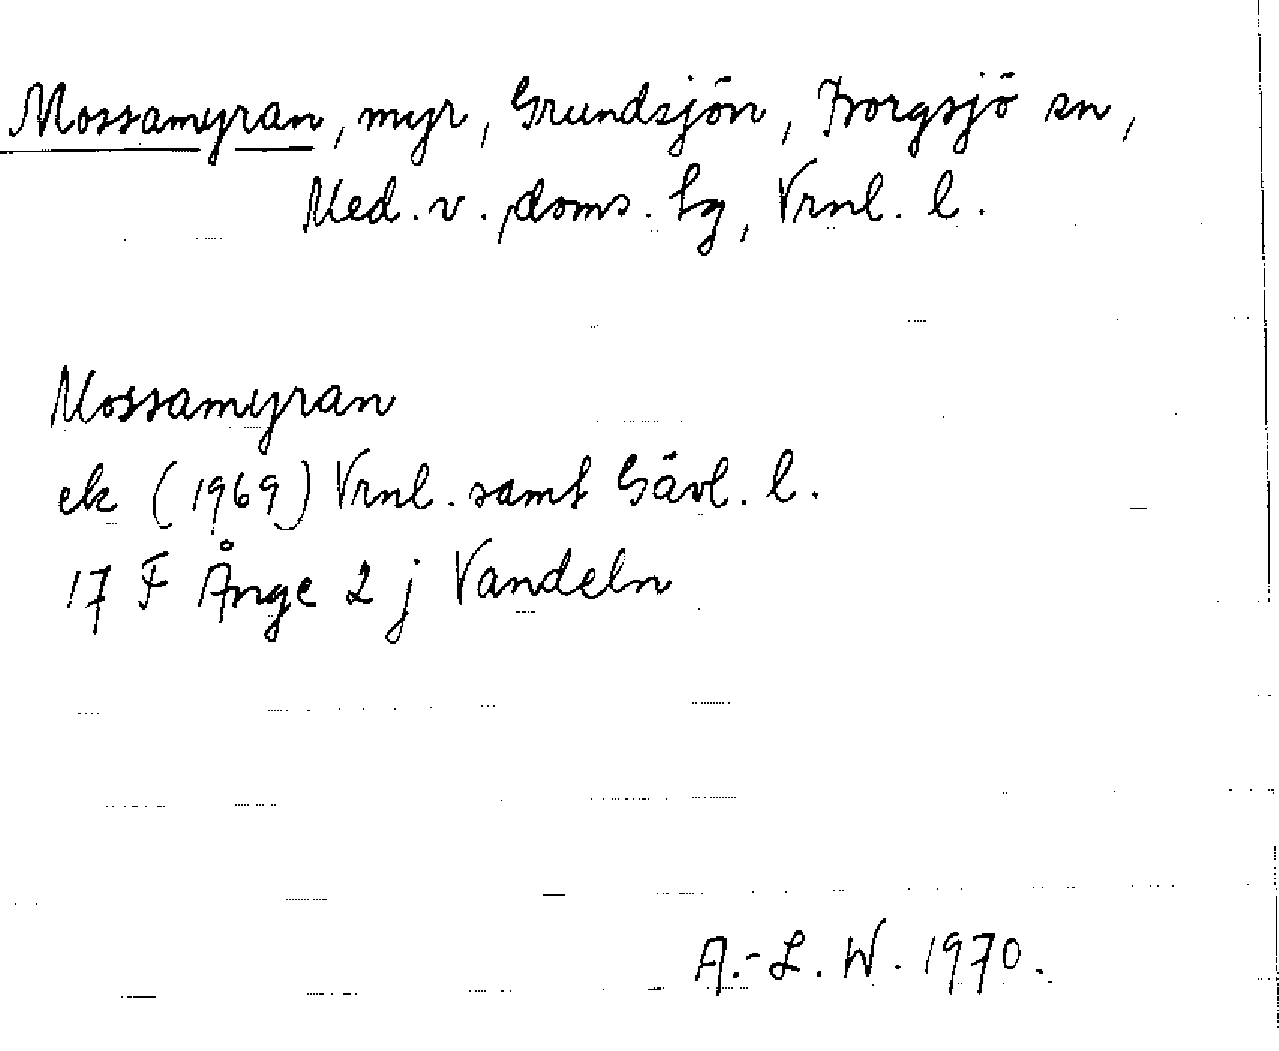 Mossamyran, myr, Grundsjön, Borgsjö sn,
Med. v. doms. hg, Vrnl. l.
Mossamyran
ek (1969) Vrnl. samt Gävl. l.
17 F Ånge 2 j Vandeln
A.-L. W. 1970.